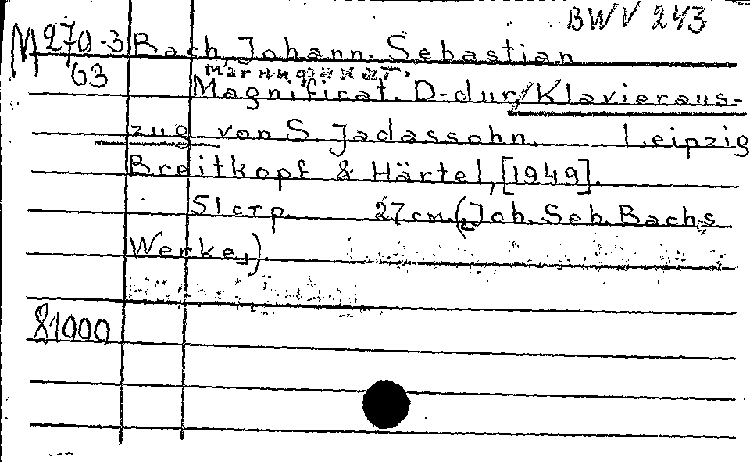 BWV 243
M 270-3 Bach, Johann Sebastian
63 Магнификат.
Magnificat. D-dur/Klavieraus-
zug von S. Jadassohn. Leipzig
Breitkopf & Härtel, [1949].
51 стр. 27 cm. (Joh. Seb. Bachs
Werke,)
81000